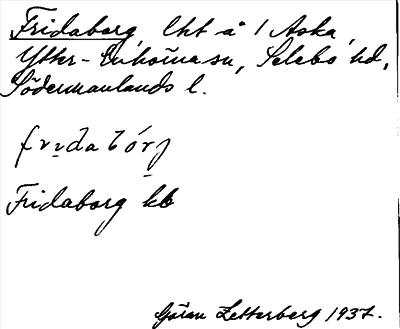 Fridaborg, lht å 1 Aska,
Ytter-Enhörna sn, Selebo hd,
Södermanlands l.
Fridaborg kb
Göran Zetterberg 1937.